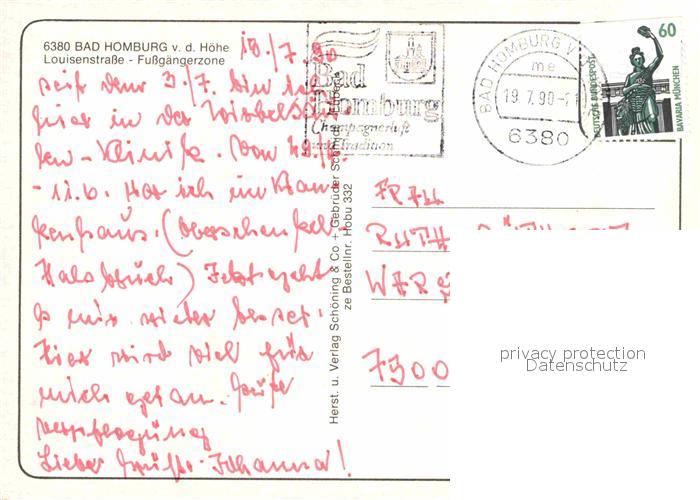 6380 BAD HOMBURG v. d. Höhe
Louisenstraße - Fußgängerzone
18./7.90
seit dem 3./7. bin ich
hier in der Wirbelsäu
len-Klinik. Vom
-11.6. war ich im Kran
kenhaus. (Oberschenkel
Halsbruch) Jetzt geht
es mir wieder besser.
Hier wird viel für
mich getan. Gute
Verpflegung
Liebe Grüße Johanna!
Bad
Homburg
Champagnerluft
und Tradition
BAD HOMBURG V D
me
19.7.90
6380
60
DEUTSCHE BUNDESPOST
BAVARIA MÜNCHEN
Herst. u. Verlag Schöning & Co + Gebrüder Schmidt, Lübeck
ze Bestellnr. Hobu 332
FRAU
RUTH
7300
privacy protection
Datenschutz